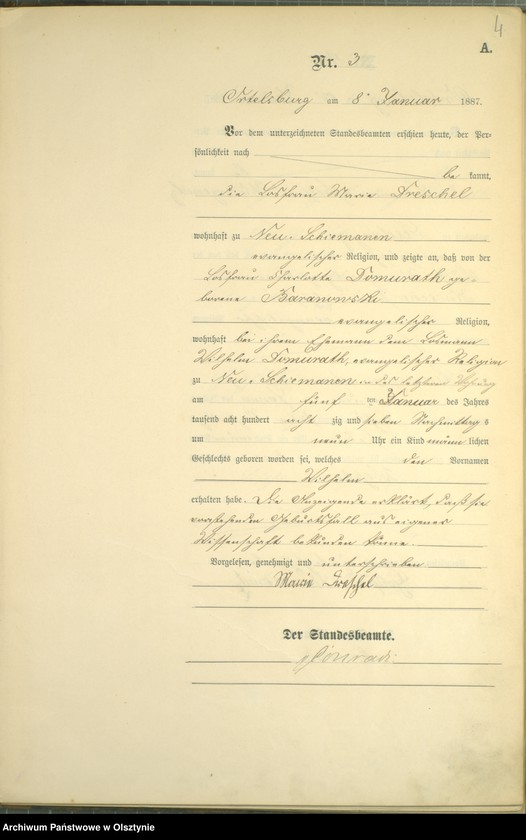 4
A.
Nr. 3
Ortelsburg am 8. Januar 1887.
Vor dem unterzeichneten Standesbeamten erschien heute, der Per=
sönlichkeit nach
be kannt,
die Losfrau Marie Dreschel
wohnhaft zu Neu-Schiemanen
evangelischer Religion, und zeigte an, daß von der
Losfrau Charlotte Domurath ge-
borene Baranowski
evangelischer Religion,
wohnhaft bei ihrem Ehemann dem Losmann
Wilhelm Domurath, evangelischer Religion
zu Neu-Schiemanen in des letzteren Wohnung
am fünf ten Januar des Jahres
tausend acht hundert acht zig und sieben Nachmittag s
um neun Uhr ein Kind männ lichen
Geschlechts geboren worden sei, welches den Vornamen
Wilhelm
erhalten habe. Die Anzeigende erklärt, daß sie
vorstehenden Geburtsfall aus eigener
Wissenschaft bekunden könne.
Vorgelesen, genehmigt und unterschrieben
Marie Dreschel
Der Standesbeamte.
Conradi
Archiwum Państwowe w Olsztynie